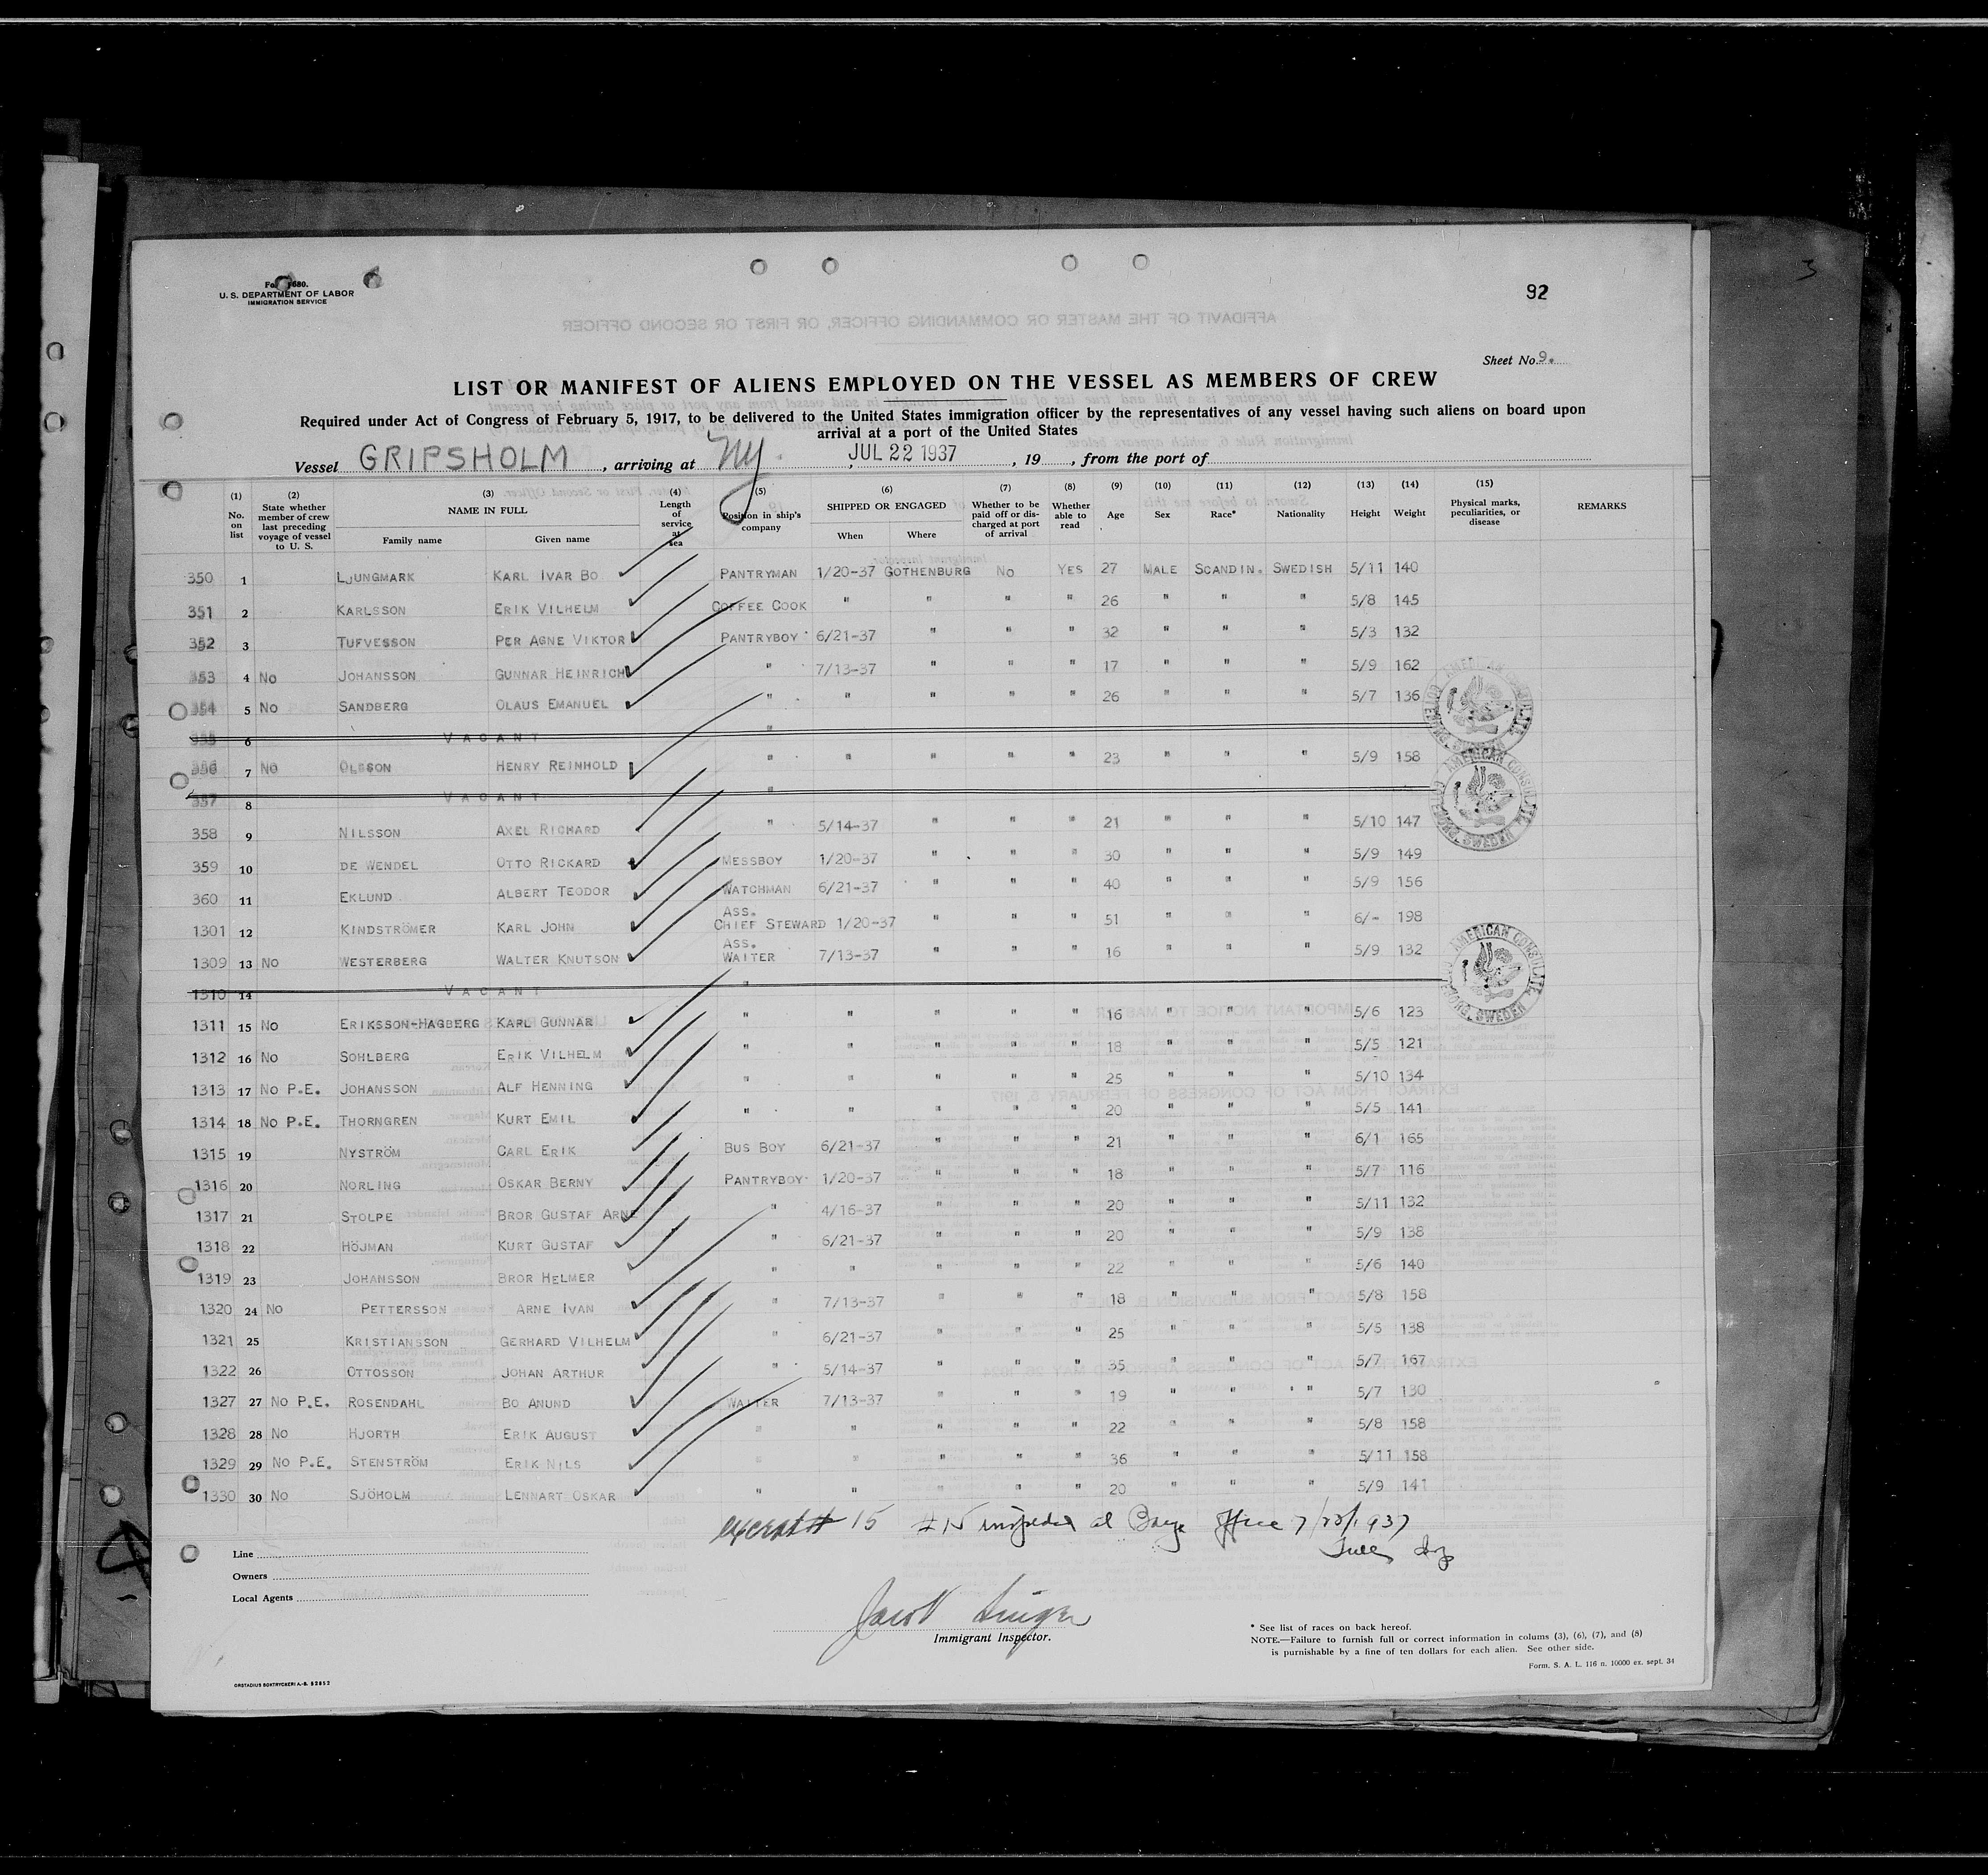 3
Form 680.
U. S. DEPARTMENT OF LABOR
IMMIGRATION SERVICE
92
Sheet No. 9.
LIST OR MANIFEST OF ALIENS EMPLOYED ON THE VESSEL AS MEMBERS OF CREW
Required under Act of Congress of February 5, 1917, to be delivered to the United States immigration officer by the representatives of any vessel having such aliens on board upon
arrival at a port of the United States
Vessel GRIPSHOLM , arriving at NY. , JUL 22 1937 , 19 , from the port of
(1) No. on list (2) State whether member of crew last preceding voyage of vessel to U. S. (3) NAME IN FULL Family name Given name (4) Length of service at sea (5) Position in ship's company (6) SHIPPED OR ENGAGED When Where (7) Whether to be paid off or discharged at port of arrival (8) Whether able to read (9) Age (10) Sex (11) Race* (12) Nationality (13) Height (14) Weight (15) Physical marks, peculiarities, or disease REMARKS
350 1 LJUNGMARK KARL IVAR BO PANTRYMAN 1/20-37 GOTHENBURG NO YES 27 MALE SCANDIN. SWEDISH 5/11 140
351 2 KARLSSON ERIK VILHELM COFFEE COOK " " " " 26 " " " 5/8 145
352 3 TUFVESSON PER AGNE VIKTOR PANTRYBOY 6/21-37 " " " 32 " " " 5/3 132
353 4 NO JOHANSSON GUNNAR HEINRICH " 7/13-37 " " " 17 " " " 5/9 162
354 5 NO SANDBERG OLAUS EMANUEL " " " " " 26 " " " 5/7 136
355 6 VACANT "
356 7 NO OLSSON HENRY REINHOLD " " " " " 23 " " " 5/9 158
357 8 VACANT "
358 9 NILSSON AXEL RICHARD " 5/14-37 " " " 21 " " " 5/10 147
359 10 DE WENDEL OTTO RICKARD MESSBOY 1/20-37 " " " 30 " " " 5/9 149
360 11 EKLUND ALBERT TEODOR WATCHMAN 6/21-37 " " " 40 " " " 5/9 156
1301 12 KINDSTRÖMER KARL JOHN ASS. CHIEF STEWARD 1/20-37 " " " 51 " " " 6/- 198
1309 13 NO WESTERBERG WALTER KNUTSON ASS. WAITER 7/13-37 " " " 16 " " " 5/9 132
1310 14 VACANT "
1311 15 NO ERIKSSON-HAGBERG KARL GUNNAR " " " " " 16 " " " 5/6 123
1312 16 NO SOHLBERG ERIK VILHELM " " " " " 18 " " " 5/5 121
1313 17 NO P.E. JOHANSSON ALF HENNING " " " " " 25 " " " 5/10 134
1314 18 NO P.E. THORNGREN KURT EMIL " " " " " 20 " " " 5/5 141
1315 19 NYSTRÖM CARL ERIK BUS BOY 6/21-37 " " " 21 " " " 6/1 165
1316 20 NORLING OSKAR BERNY PANTRYBOY 1/20-37 " " " 18 " " " 5/7 116
1317 21 STOLPE BROR GUSTAF ARNE " 4/16-37 " " " 20 " " " 5/11 132
1318 22 HÖJMAN KURT GUSTAF " 6/21-37 " " " 20 " " " 5/9 138
1319 23 JOHANSSON BROR HELMER " " " " " 22 " " " 5/6 140
1320 24 NO PETTERSSON ARNE IVAN " 7/13-37 " " " 18 " " " 5/8 158
1321 25 KRISTIANSSON GERHARD VILHELM " 6/21-37 " " " 25 " " " 5/5 138
1322 26 OTTOSSON JOHAN ARTHUR " 5/14-37 " " " 35 " " " 5/7 167
1327 27 NO P.E. ROSENDAHL BO ANUND WAITER 7/13-37 " " " 19 " " " 5/7 130
1328 28 NO HJORTH ERIK AUGUST " " " " " 22 " " " 5/8 158
1329 29 NO P.E. STENSTRÖM ERIK NILS " " " " " 36 " " " 5/11 158
1330 30 NO SJÖHOLM LENNART OSKAR " " " " " 20 " " " 5/9 141
AMERICAN CONSULATE GOTHENBURG, SWEDEN
AMERICAN CONSULATE GOTHENBURG, SWEDEN
AMERICAN CONSULATE GOTHENBURG, SWEDEN
except # 15 # 15 inspected at Barge Office 7/23/1937
Line
Owners
Local Agents
Jacob Singer
Immigrant Inspector.
* See list of races on back hereof.
NOTE.—Failure to furnish full or correct information in colums (3), (6), (7), and (8)
is punishable by a fine of ten dollars for each alien. See other side.
Form. S. A. L. 116 n. 10000 ex. sept. 34
ORSTADIUS BOKTRYCKERI A.-B. 52852